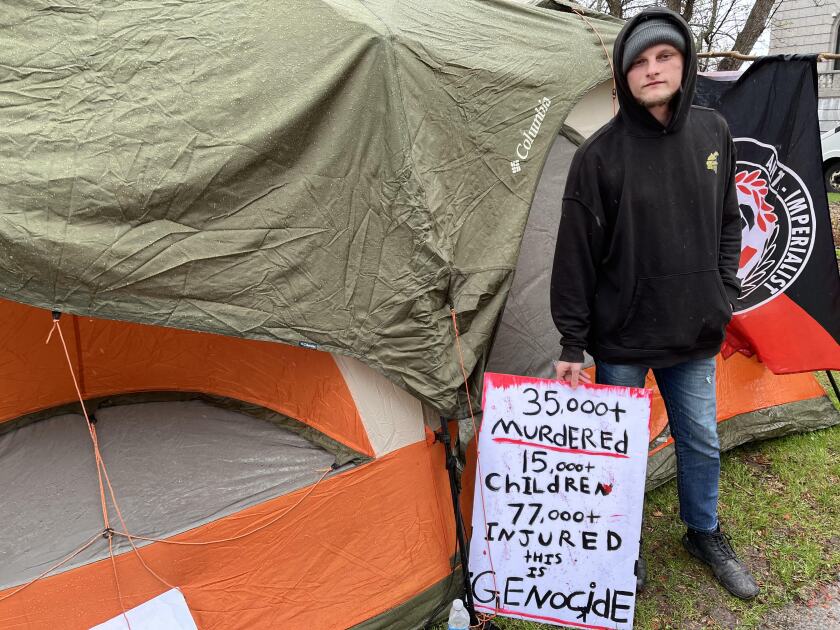 Columbia
IMPERIALIST
35,000+
MURDERED
15,000+
CHILDREN
77,000+
INJURED
THIS
IS
GENOCIDE